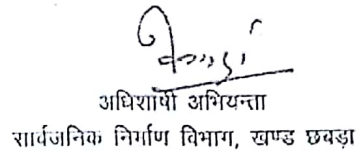 अधिशाषी अभियन्ता
सार्वजनिक निर्माण विभाग, खण्ड छबड़ा